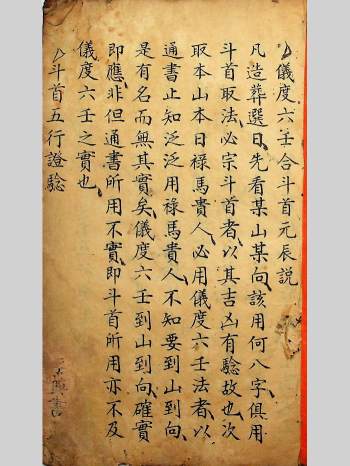 儀度六壬合斗首元辰説
凡造葬選日先看某山某向該用何八字俱用
斗首取法必宗斗首者以其吉凶有驗故也次
取本山本日祿馬貴人必用儀度六壬法者以
通書止知泛泛用祿馬貴人不知要到山到向
是有名而無其實矣儀度六壬到山到向確實
即應非但通書所用不實即斗首所用亦不及
儀度六壬之實也
斗首五行證驗